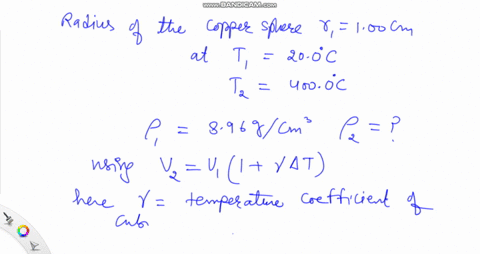 WWW.BANDICAM.COM
Radius of the copper sphere r₁ = 1.00 cm
at T₁ = 20.0°C
T₂ = 400.0°C
ρ₁ = 8.96 g/cm³ ρ₂ = ?
using V₂ = V₁ (1 + γ ΔT)
here γ = temperature coefficient of
cub